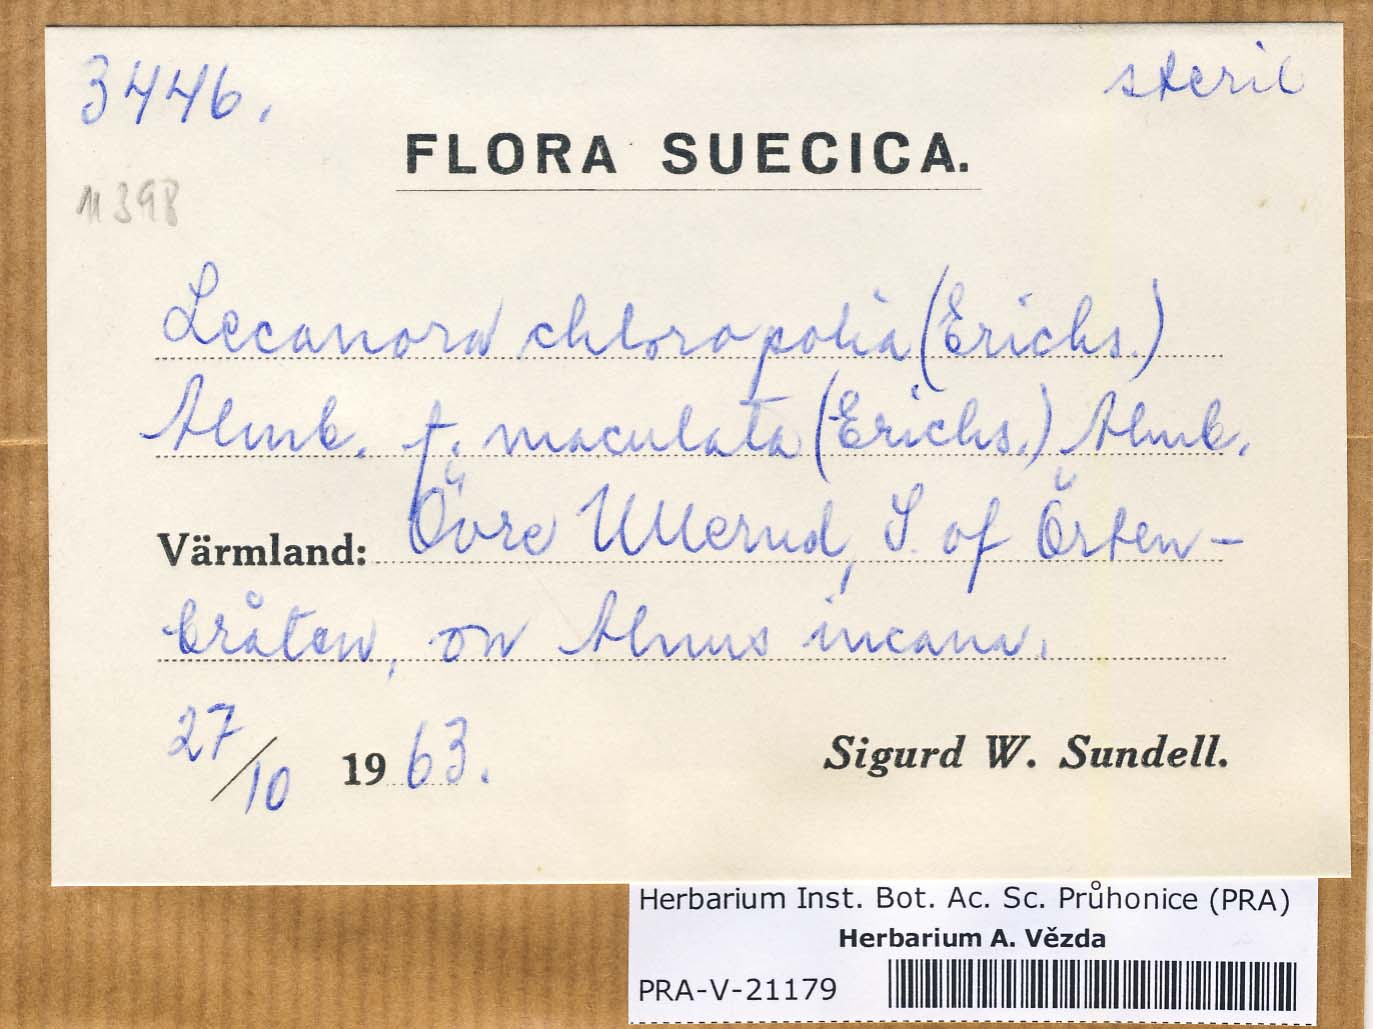 3446.
steril
FLORA SUECICA.
11398
Lecanora chloropolia (Erichs.)
Almb. f. maculata (Erichs.) Almb.
Värmland: Övre Ullerud, S. of Örten-
bråten, on Alnus incana.
27/10 1963.
Sigurd W. Sundell.
Herbarium Inst. Bot. Ac. Sc. Průhonice (PRA)
Herbarium A. Vězda
PRA-V-21179